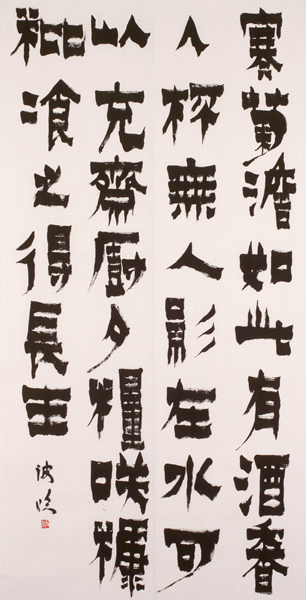 寒菊澹如此有酒香
人杯無人影在水可
以充齋廚夕糧咲糠
粃飡之得長生